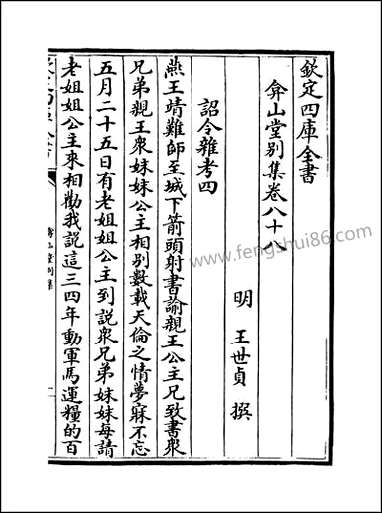 欽定四庫全書
弇山堂別集卷八十八
明 王世貞 撰
詔令雜考四
燕王靖難師至城下箭頭射書諭親王公主兄致書衆
兄弟親王衆妹妹公主相别數載天倫之情夢寐不忘
五月二十五日有老姐姐公主到說衆兄弟妹妹每請
老姐姐公主來相勸我說這三四年動軍馬運糧的百
弇山堂别集
www.fengshui86.com